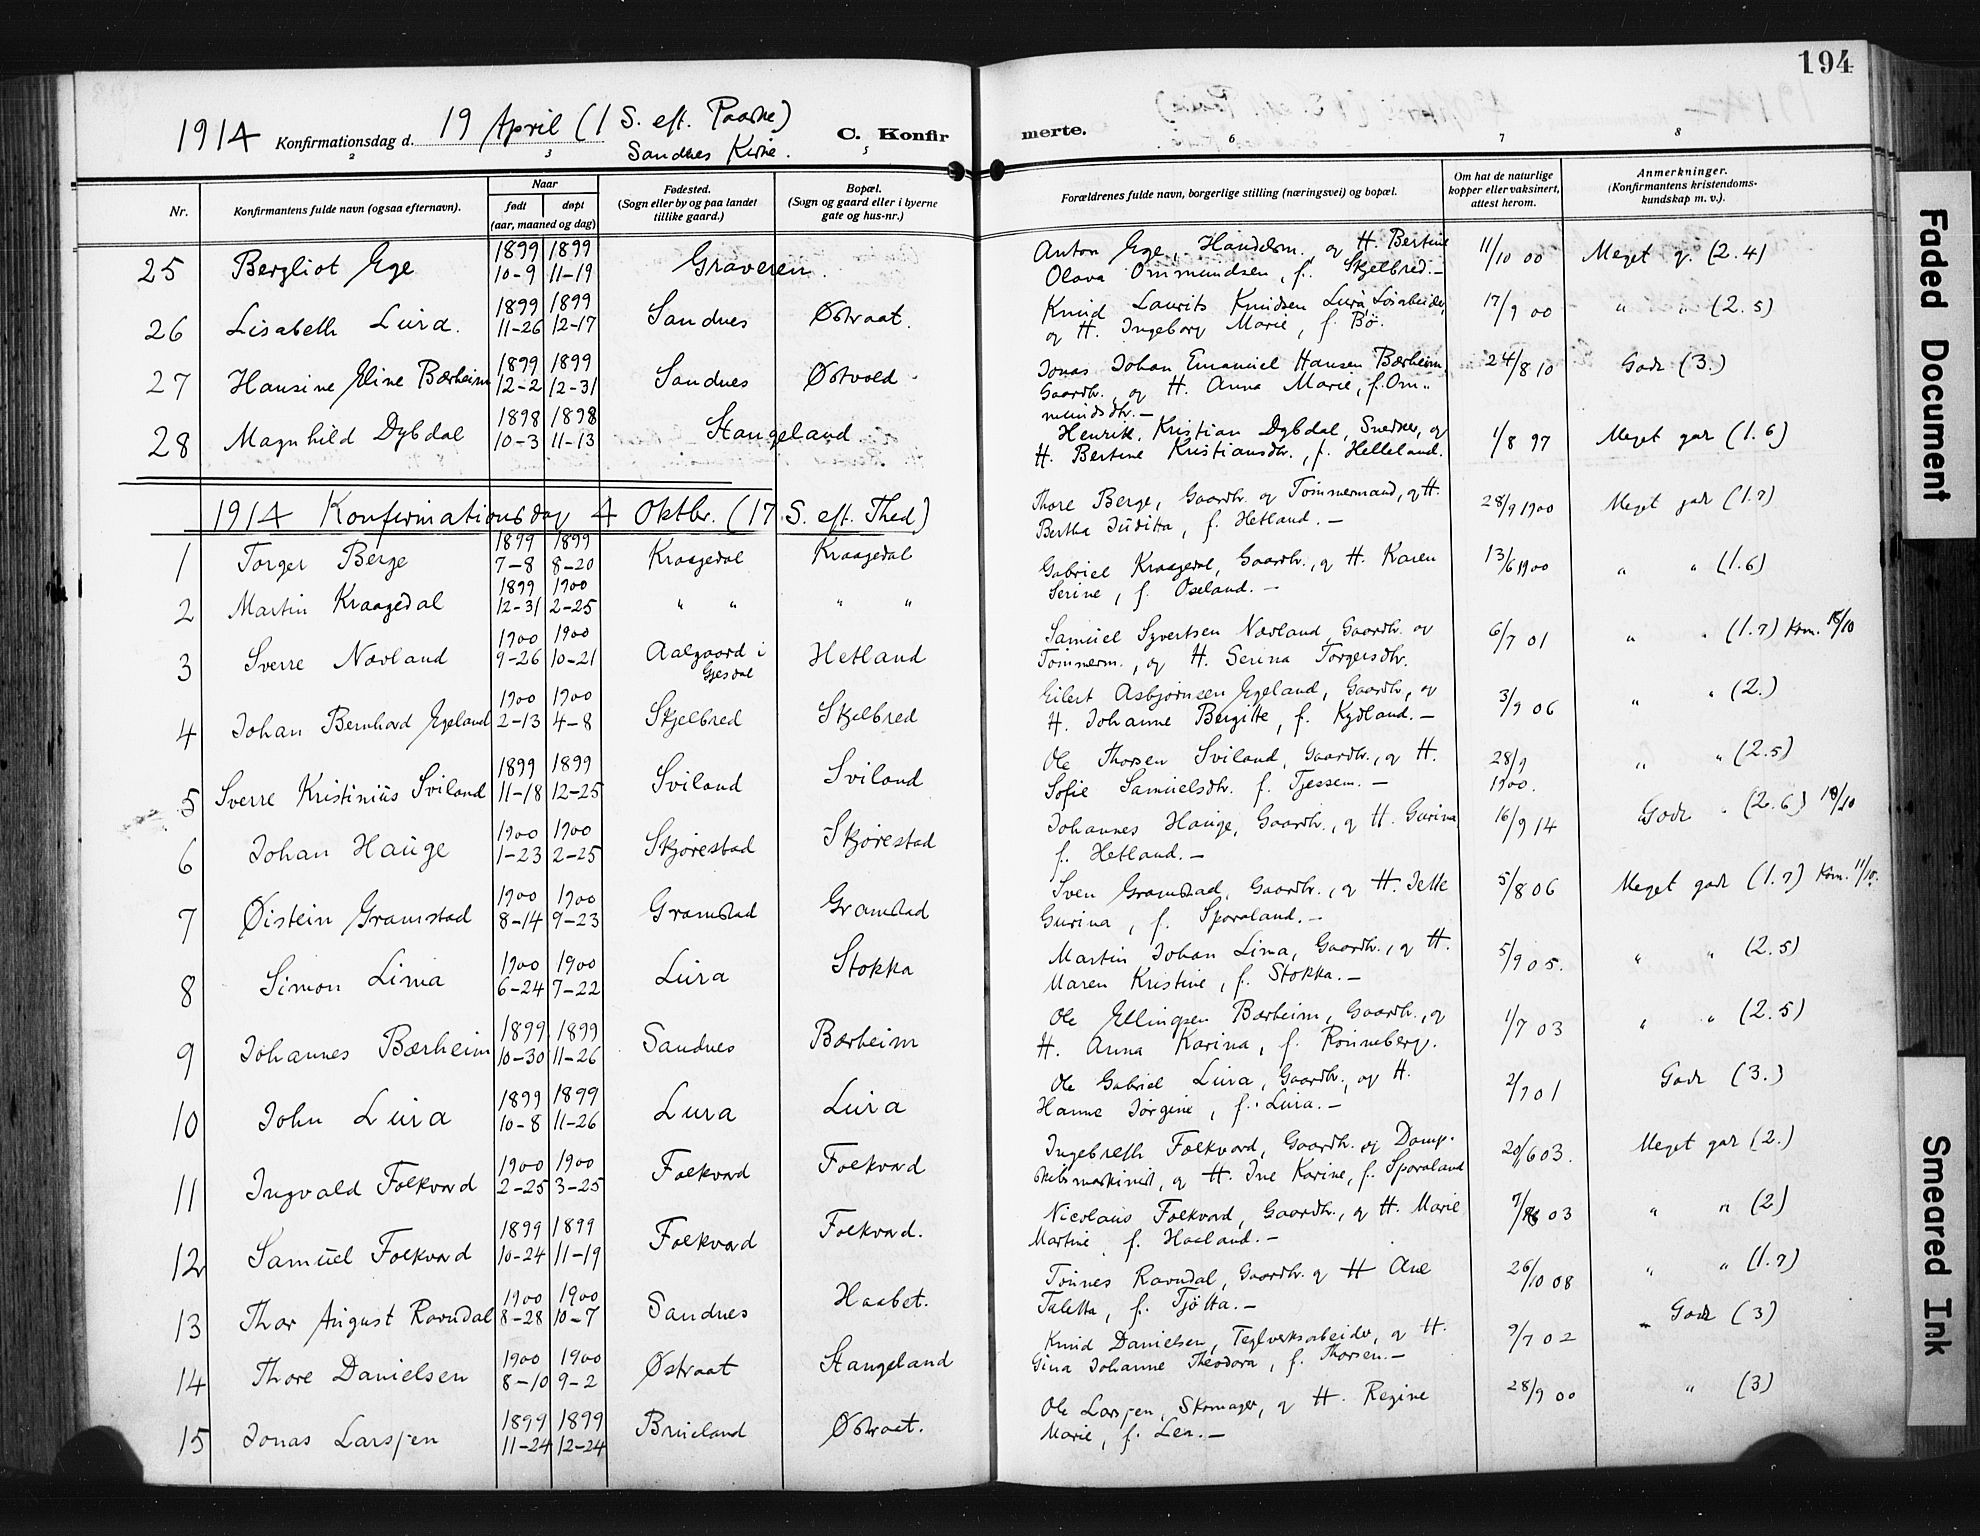 194
1914 Konfirmationsdag d. 19 April (1 S. eft. Paaske)
Sandnes Kirke.
C. Konfirmerte.
2 3 5 6 7 8
Nr.
Konfirmantens fulde navn (ogsaa efternavn).
Naar
født døpt
(aar, maaned og dag)
Fødested.
(Sogn eller by og paa landet
tillike gaard.)
Bopæl.
(Sogn og gaard eller i byerne
gate og hus-nr.)
Forældrenes fulde navn, borgerlige stilling (næringsvei) og bopæl.
Om hat de naturlige
kopper eller vaksinert,
attest herom.
Anmerkninger.
(Konfirmantens kristendoms-
kundskap m. v.).
25 Bergliot Ege 1899 10-9 1899 11-19 Graveren.
Anton Ege, Handelsm., og H. Bertine
Olava Ommundsen, f. Skjelbred.-
11/10 00 Meget g. (2.4)
26 Lisabeth Lura. 1899 11-26 1899 12-17 Sandnes Østraat.
Knud Laurits Knudsen Lura, Løsarbeider,
og H. Ingeborg Marie, f. Bø.
17/9 00 " " (2.5)
27 Hansine Eline Bærheim 1899 12-2 1899 12-31 Sandnes Østvold
Jonas Johan Emanuel Hansen Bærheim,
Gaardbr., og H. Anna Marie, f. Om-
mundsdtr.-
24/8 10 Godt (3.)
28 Magnhild Dybdal 1898 10-3 1898 11-13 Stangeland
Henrik Kristian Dybdal, Snedker, og
H. Bertine Kristiansdtr., f. Helleland.
1/8 97 Meget godt (1.6)
1914 Konfirmationsdag 4 Oktbr. (17. S. eft. Tred)
1 Torger Berge 1899 7-8 1899 8-20 Kraagedal Kraagedal
Thore Berge, Gaardbr. og Tømmermand, og H.
Bertha Juditta, f. Hetland.-
28/9 1900 Meget godt (1.7)
2 Martin Kraagedal 1899 12-31 1900 2-25 " " " "
Gabriel Kraagedal, Gaardbr., og H. Karen
Serine, f. Oseland.-
13/6 1900 " " (1.6)
3 Sverre Nævland 1900 9-26 1900 10-21 Aalgaard i Gjesdal Hetland
Samuel Syvertsen Nævland, Gaardbr. og
Tømmerm., og H. Serina Torgersdtr.
6/7 01 " " (1.7) Kom. 18/10
4 Johan Bernhard Egeland 1900 2-13 1900 4-8 Skjelbred Skjelbred
Eilert Asbjørnsen Egeland, Gaardbr., og
H. Johanne Bergitte, f. Kydland.-
3/9 06 " " (2.)
5 Sverre Kristinius Sviland 1899 11-18 1899 12-25 Sviland Sviland
Ole Thorsen Sviland, Gaardbr., og H.
Sofie Samuelsdtr. f. Tjessem.-
28/9 1900. " " (2.5)
6 Johan Hauge 1900 1-23 1900 2-25 Skjørestad Skjørestad
Johannes Hauge, Gaardbr., og H. Gurina
f. Hetland.-
16/9 14 Godt " (2.6) 18/10
7 Øistein Gramstad 1900 8-14 1900 9-23 Gramstad Gramstad
Sven Gramstad, Gaardbr., og H. Jette
Gurina, f. Sporaland.-
5/8 06 Meget godt (1.7) Kom. 11/10.
8 Simon Lima 1900 6-24 1900 7-22 Lura Stokka
Martin Johan Lima, Gaardbr., og H.
Maren Kristine, f. Stokka.-
5/9 05. " " (2.5)
9 Johannes Bærheim 1899 10-30 1899 11-26 Sandnes Bærheim
Ole Ellingsen Bærheim, Gaardbr., og
H. Anna Karina, f. Rønneberg.
1/7 03 " " (2.5)
10 John Lura 1899 10-8 1899 11-26 Lura Lura
Ole Gabriel Lura, Gaardbr., og H.
Hanne Jørgine, f. Lura.-
2/7 01 Godt (3.)
11 Ingvald Folkvord 1900 2-25 1900 3-25 Folkvord Folkvord
Ingebreth Folkvord, Gaardbr. og Damp-
skibsmaskinist, og H. Ine Karine, f. Sporaland
20/6 03. Meget godt (2.)
12 Samuel Folkvord 1899 10-24 1899 11-19 Folkvord Folkvord.
Nicolaus Folkvord, Gaardbr., og H. Marie
Martine, f. Haaland.-
03 " " (2)
13 Thor August Ravndal 1900 8-28 1900 10-7 Sandnes Haabet.
Tønnes Ravndal, Gaardbr. og H. Ane
Taletta, f. Tjøtta.-
26/10 08 " " (1.7)
14 Thore Danielsen 1900 8-10 1900 9-2 Østraat Stangeland
Knud Danielsen, Teglverksarbeider, og H.
Gina Johanne Theodora, f. Thorsen.-
9/7 02 Godt (3)
15 Jonas Larssen 1899 11-24 1899 12-24 Brueland Østraat.
Ole Larssen, Skomager, og H. Regine
Marie, f. Lea.-
28/9 00 " (3)
Faded Document
Smeared Ink